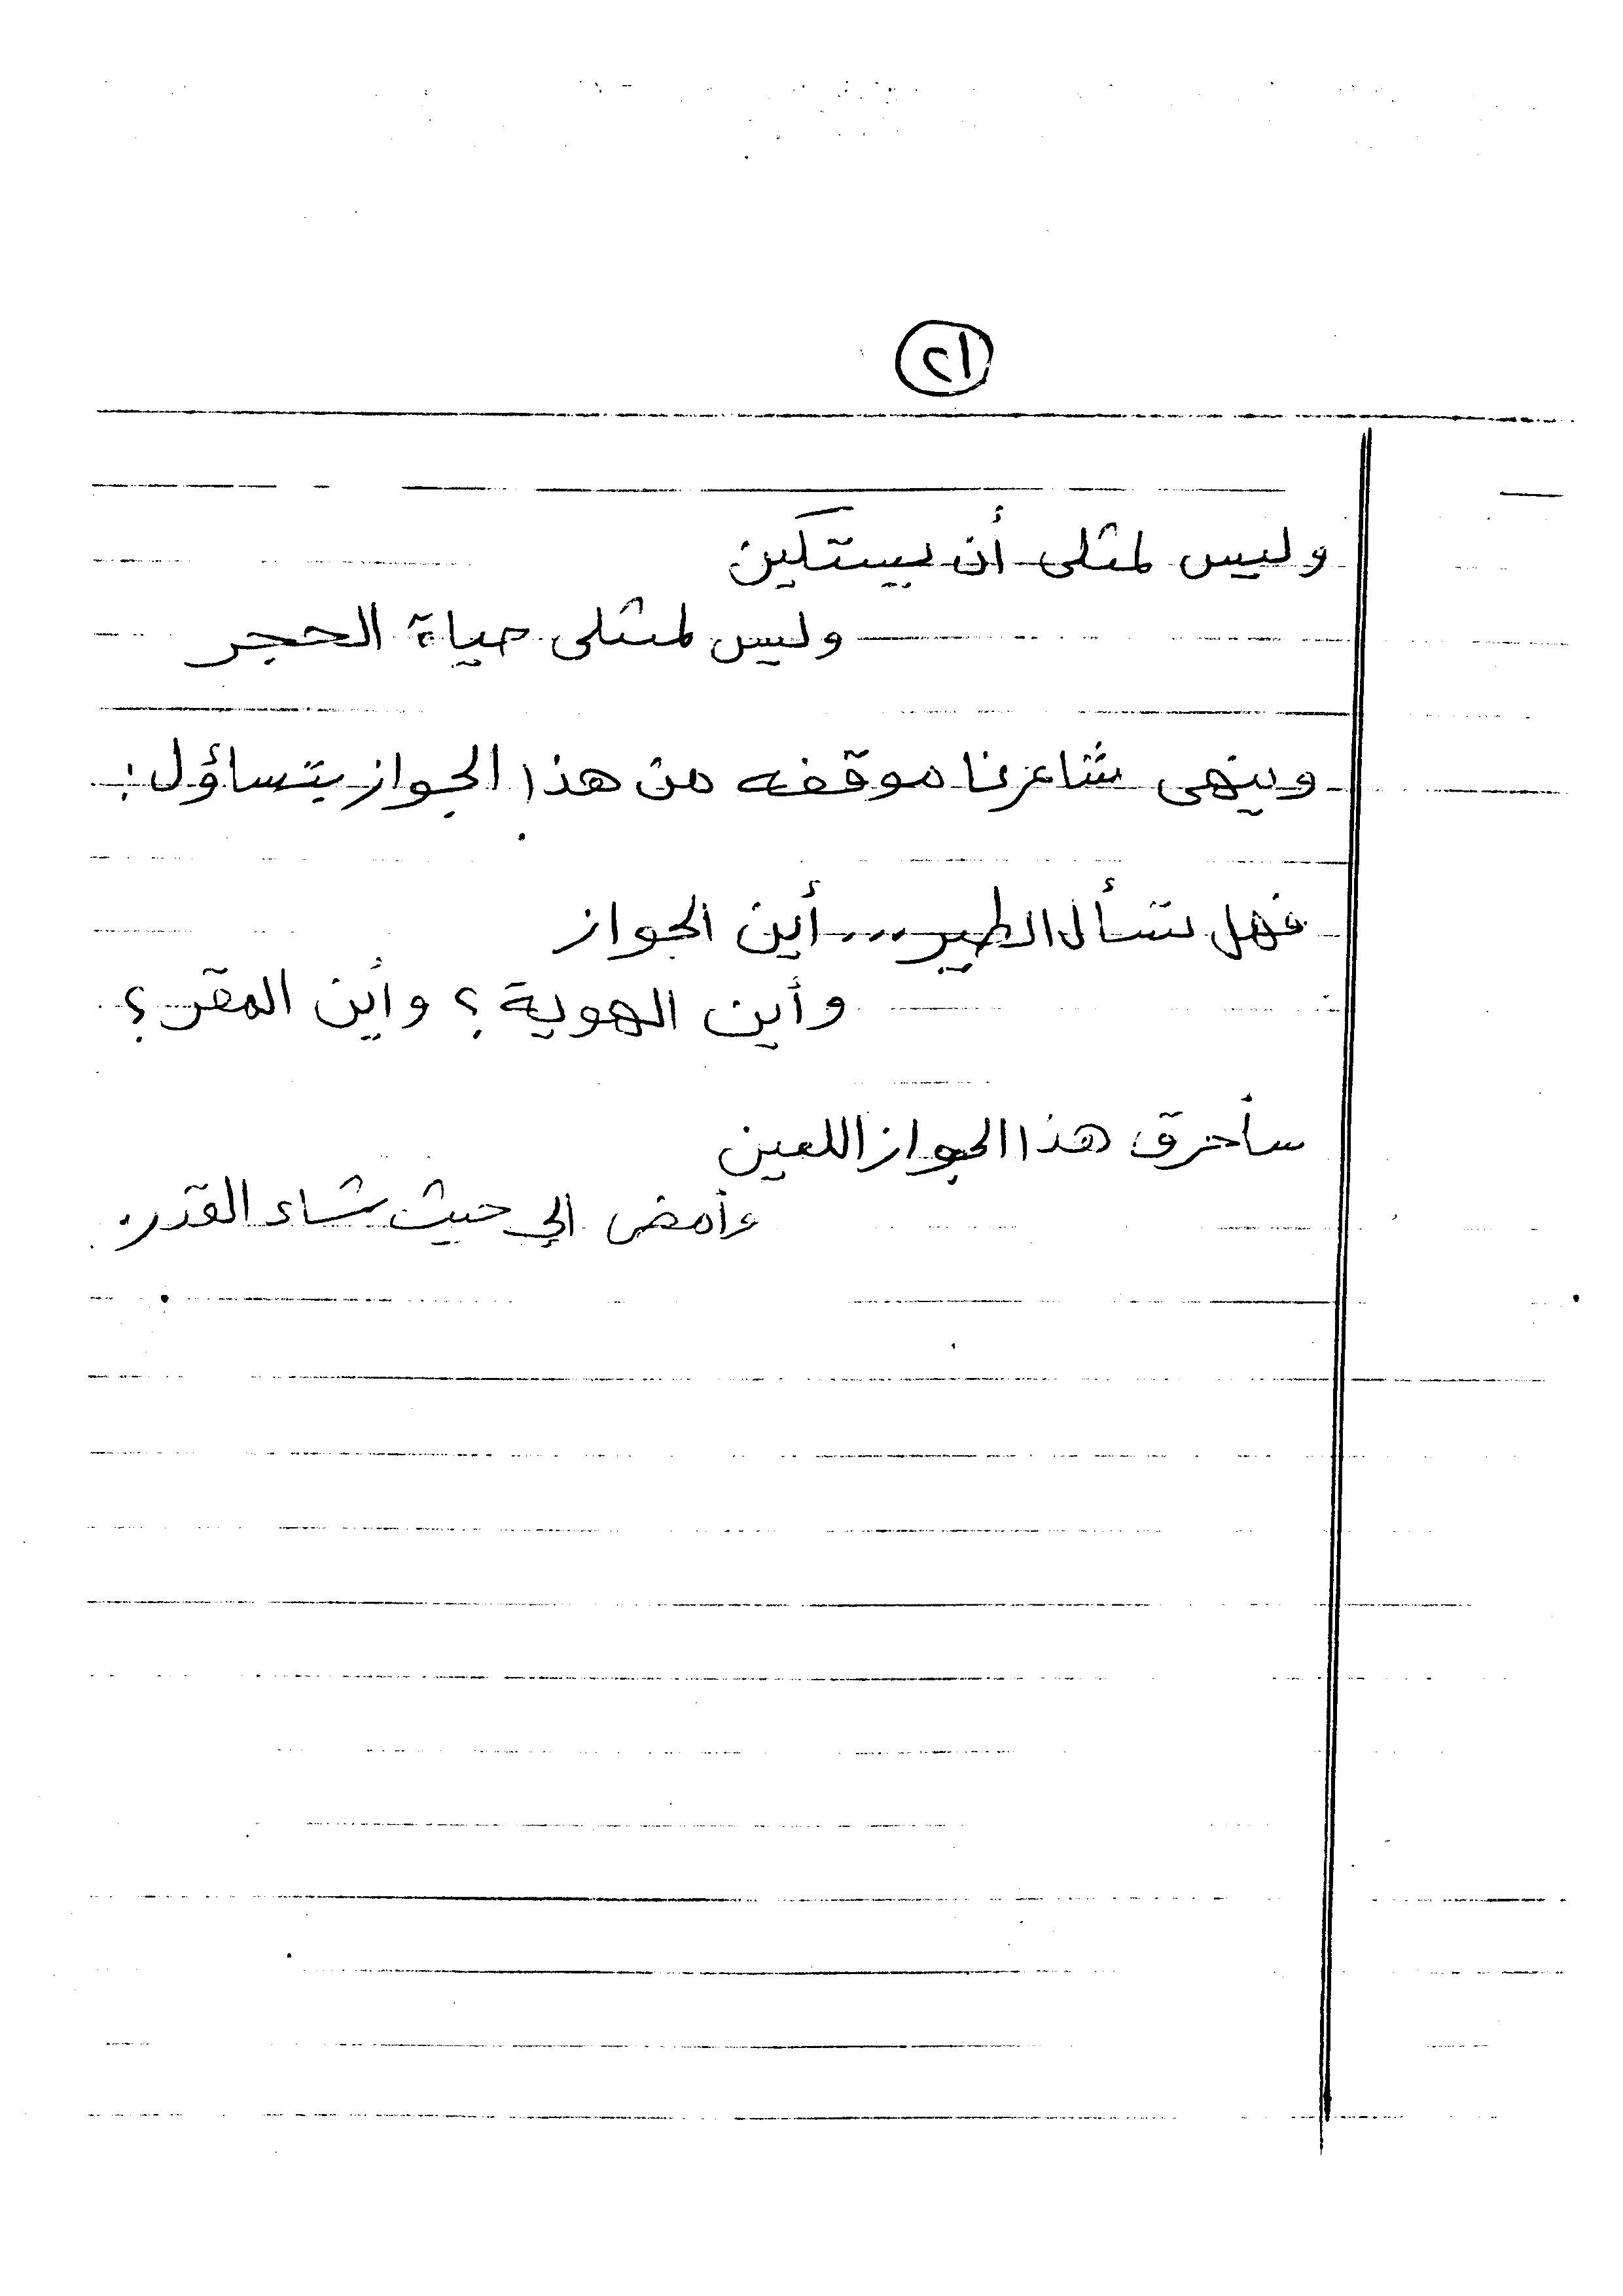 ١٢
وليس لمثلى أن يستكين
وليس لمثلى حياة الحجر
وينهى شاعرنا موقفه من هذا الجواز يتساؤل:
فهل تسأل الطير... أين الجواز
وأين الهوية؟ وأين المقر؟
سأحرق هذا الجواز اللعين
وأمضى إلي حيث شاء القدر.